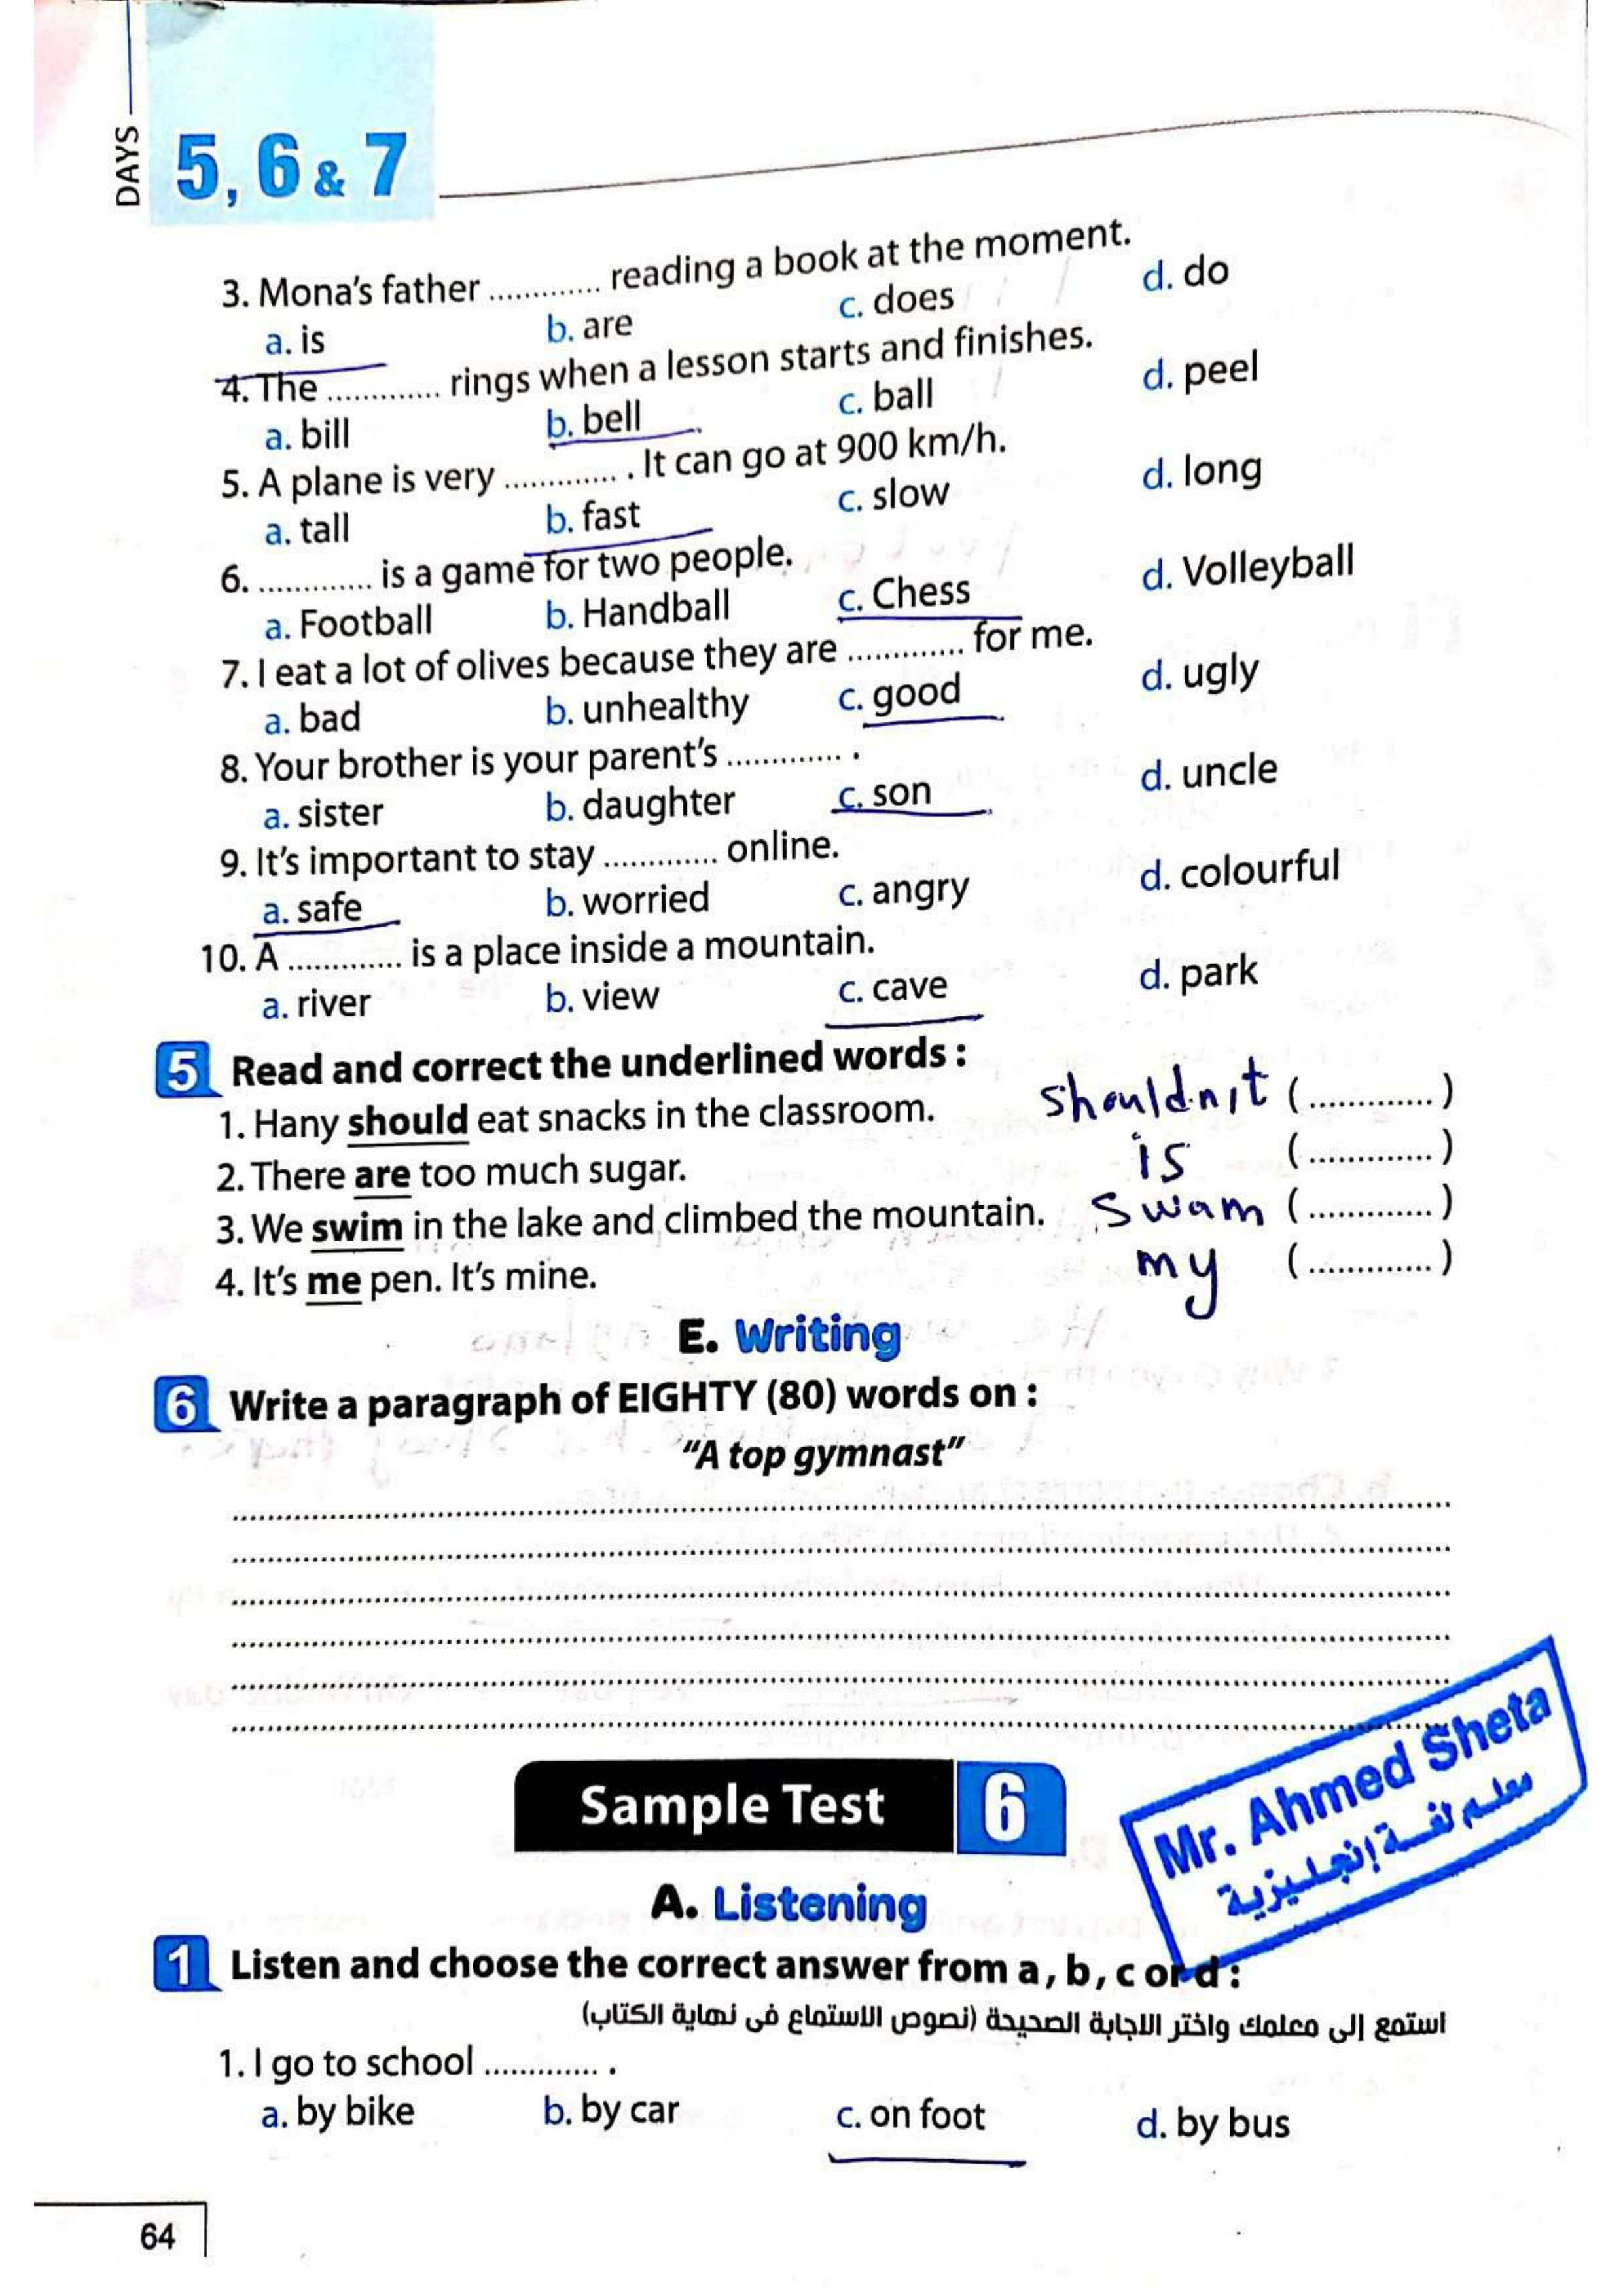 DAYS
5, 6 & 7
3. Mona's father ............. reading a book at the moment.
a. is b. are c. does d. do
4. The ............. rings when a lesson starts and finishes.
a. bill b. bell c. ball d. peel
5. A plane is very ............. . It can go at 900 km/h.
a. tall b. fast c. slow d. long
6. ............. is a game for two people.
a. Football b. Handball c. Chess d. Volleyball
7. I eat a lot of olives because they are ............. for me.
a. bad b. unhealthy c. good d. ugly
8. Your brother is your parent's ............. .
a. sister b. daughter c. son d. uncle
9. It's important to stay ............. online.
a. safe b. worried c. angry d. colourful
10. A ............. is a place inside a mountain.
a. river b. view c. cave d. park
5 Read and correct the underlined words :
1. Hany should eat snacks in the classroom. shouldn't (.............)
2. There are too much sugar. is (.............)
3. We swim in the lake and climbed the mountain. swam (.............)
4. It's me pen. It's mine. my (.............)
E. Writing
6 Write a paragraph of EIGHTY (80) words on :
"A top gymnast"
Sample Test 6
Mr. Ahmed Sheta
معلم لغة إنجليزية
A. Listening
1 Listen and choose the correct answer from a, b, c or d :
استمع إلى معلمك واختر الاجابة الصحيحة (نصوص الاستماع فى نهاية الكتاب)
1. I go to school ............. .
a. by bike b. by car c. on foot d. by bus
64